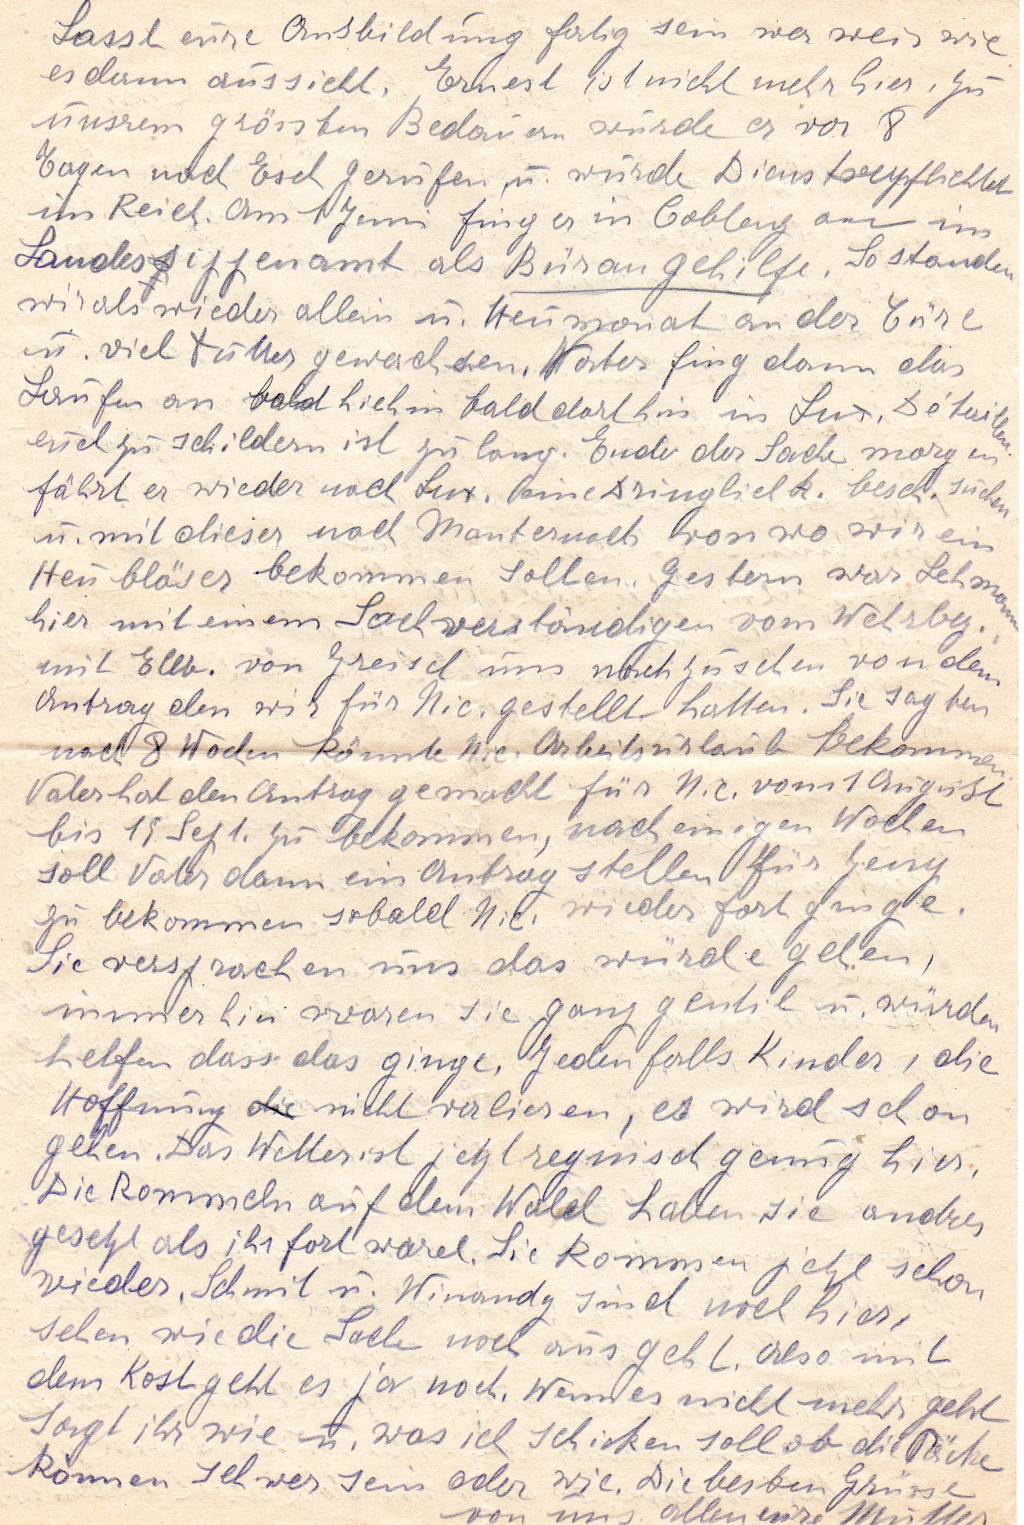 Lasst eure Ausbildung fertig sein wer weis wie
es dann aussieht. Ernest ist nicht mehr hier, zu
unsrem grössten Bedauern wurde er vor 8
Tagen nach Esch gerufen, u. wurde Dienstverpflichtet
im Reich. Am 1 Juni fing er in Coblenz an im
Landessippenamt als Büroangehilfe. So standen
wir als wieder allein u. Heumonat an der Türe
u. viel Futter gewachsen. Vater fing dann das
Laufen an bald hiehin bald dorthin in Lux. Détaillen
euch zu schildern ist zu lang. Ende der Sache morgen
fährt er wieder nach Lux. eine Dringlichk. besch. suchen
u. mit dieser nach Manternach von wo wir ein
Heubläser bekommen sollen. Gestern war Lehmann
hier mit einem Sachverständigen vom Wehrbez.
mit von Greisch um nachzusehen von dem
Antrag den wir für Nic. gestellt hatten. Sie sagten
nach 8 Wochen könnte Nic. Arbeitsurlaub bekommen.
Vater hat den Antrag gemacht für Nic. vom 1 August
bis 15 Sept. zu bekommen, nach einigen Wochen
soll Vater dann ein Antrag stellen für Jeng
zu bekommen sobald Nic. wieder fort ginge.
Sie versprachen uns das würde gehen,
immerhin waren sie ganz gentil u. würden
helfen dass das ginge. Jedenfalls Kinder, die
Hoffnung die nicht verlieren, es wird schon
gehen. Das Wetter ist jetzt regnisch genug hier.
Die Rommeln auf dem Wald haben sie andres
gesetzt als ihr fort waret. Sie kommen jetzt schon
wieder. Schmit u. Winandy sind noch hier,
sehen wie die Sache noch ausgeht. Also mit
dem Kost geht es ja noch. Wenn es nicht mehr geht
Sagt ihr wie u. was ich schicken soll ob die Päcke
können schwer sein oder wie. Die besten Grüsse
von uns allen eure Mutter